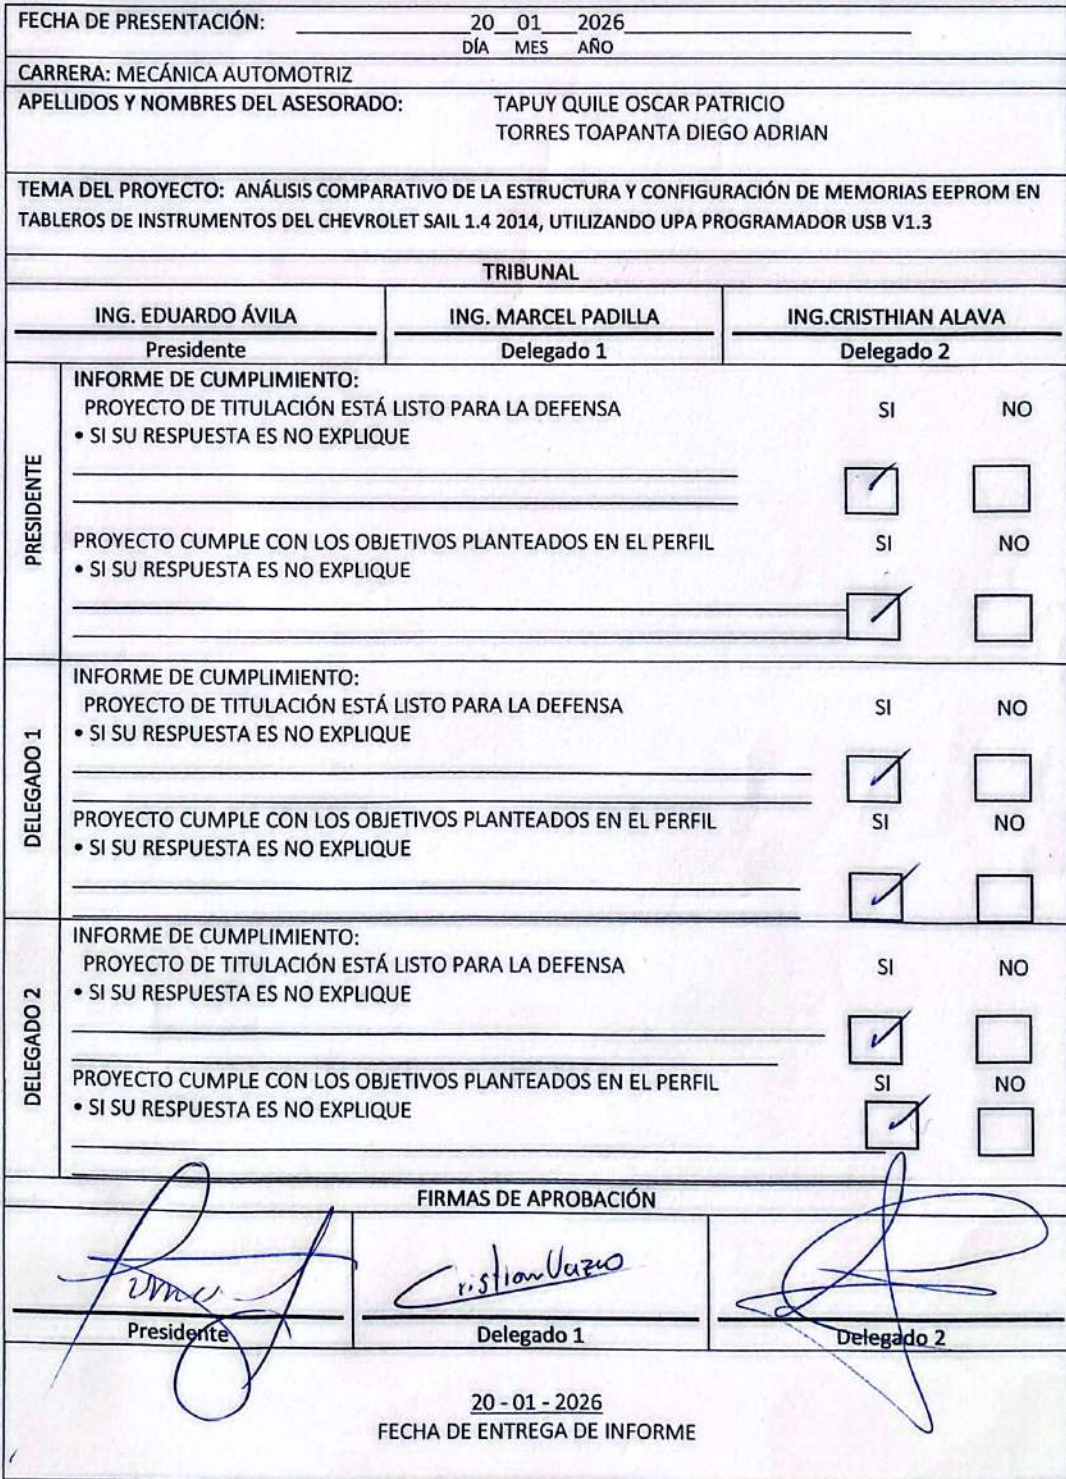 FECHA DE PRESENTACIÓN: 20 01 2026
DÍA MES AÑO
CARRERA: MECÁNICA AUTOMOTRIZ
APELLIDOS Y NOMBRES DEL ASESORADO: TAPUY QUILE OSCAR PATRICIO
TORRES TOAPANTA DIEGO ADRIAN
TEMA DEL PROYECTO: ANÁLISIS COMPARATIVO DE LA ESTRUCTURA Y CONFIGURACIÓN DE MEMORIAS EEPROM EN
TABLEROS DE INSTRUMENTOS DEL CHEVROLET SAIL 1.4 2014, UTILIZANDO UPA PROGRAMADOR USB V1.3
TRIBUNAL
ING. EDUARDO ÁVILA ING. MARCEL PADILLA ING.CRISTHIAN ALAVA
Presidente Delegado 1 Delegado 2
PRESIDENTE
INFORME DE CUMPLIMIENTO:
PROYECTO DE TITULACIÓN ESTÁ LISTO PARA LA DEFENSA SI NO
• SI SU RESPUESTA ES NO EXPLIQUE
PROYECTO CUMPLE CON LOS OBJETIVOS PLANTEADOS EN EL PERFIL SI NO
• SI SU RESPUESTA ES NO EXPLIQUE
DELEGADO 1
INFORME DE CUMPLIMIENTO:
PROYECTO DE TITULACIÓN ESTÁ LISTO PARA LA DEFENSA SI NO
• SI SU RESPUESTA ES NO EXPLIQUE
PROYECTO CUMPLE CON LOS OBJETIVOS PLANTEADOS EN EL PERFIL SI NO
• SI SU RESPUESTA ES NO EXPLIQUE
DELEGADO 2
INFORME DE CUMPLIMIENTO:
PROYECTO DE TITULACIÓN ESTÁ LISTO PARA LA DEFENSA SI NO
• SI SU RESPUESTA ES NO EXPLIQUE
PROYECTO CUMPLE CON LOS OBJETIVOS PLANTEADOS EN EL PERFIL SI NO
• SI SU RESPUESTA ES NO EXPLIQUE
FIRMAS DE APROBACIÓN
Cristian
Presidente Delegado 1 Delegado 2
20 - 01 - 2026
FECHA DE ENTREGA DE INFORME